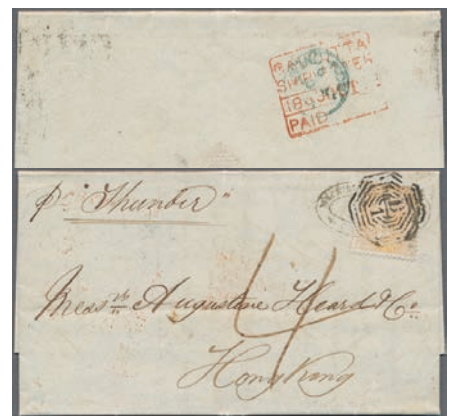 CALCUTTA
SHIP LETTER
PAID
pr "Thunder"
4
Messrs Augustine Heard & Co.
Hong Kong